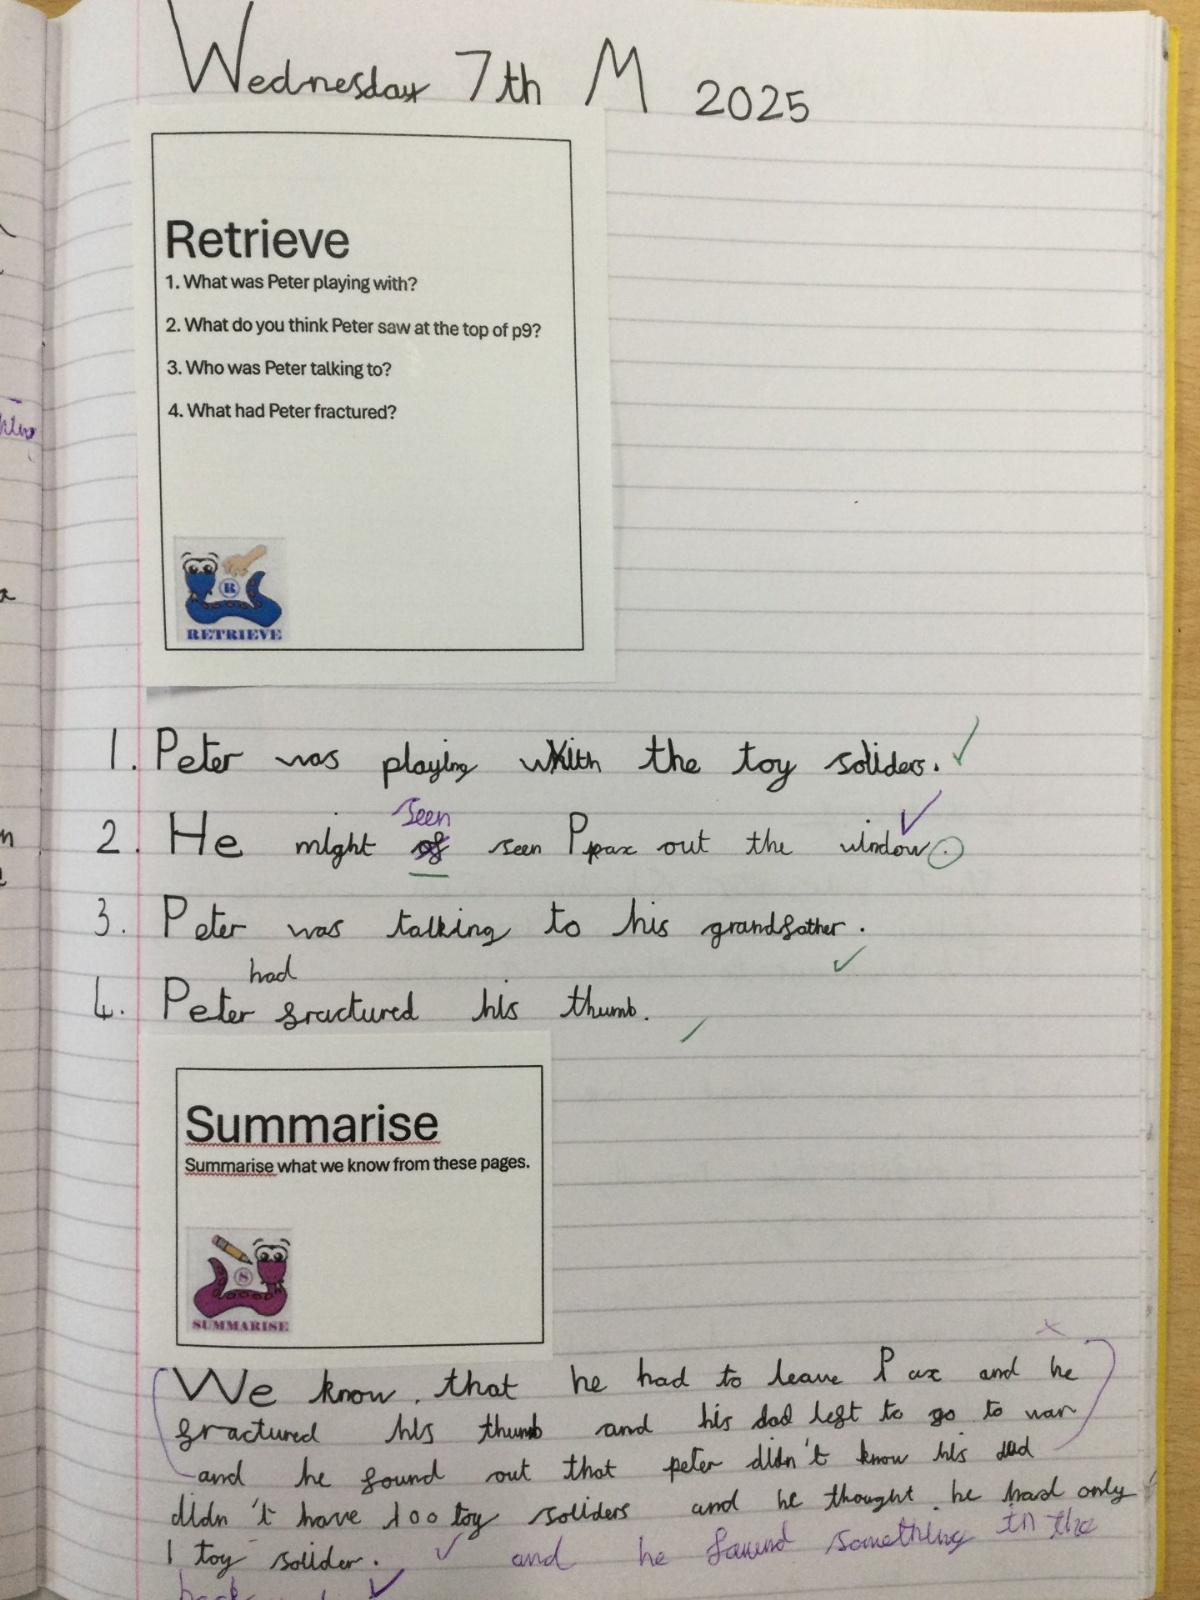 Wednesday 7th M 2025
Retrieve
1. What was Peter playing with?
2. What do you think Peter saw at the top of p9?
3. Who was Peter talking to?
4. What had Peter fractured?
R
RETRIEVE
1. Peter was playing with the toy soliders.
seen
2. He might of seen Ppax out the window.
3. Peter was talking to his grandfather.
had
4. Peter fractured his thumb.
Summarise
Summarise what we know from these pages.
S
SUMMARISE
We know. that he had to leave Pax and he
fractured his thumb and his dad left to go to war
and he found out that peter didn't know his dad
didn't have 100 toy soliders and he thought he had only
1 toy solider. and he found something in the